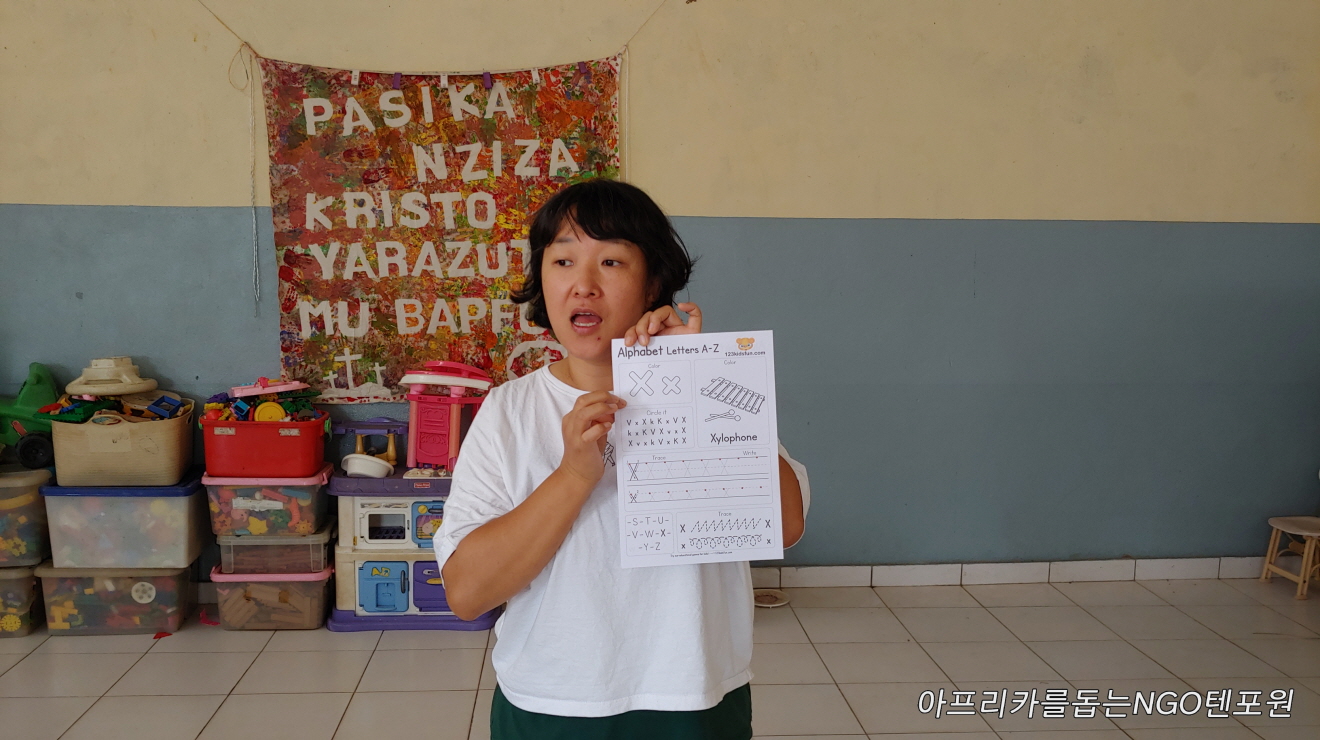 PASIKA
NZIZA
KRISTO
MU
Alphabet Letters A-Z
123kidsfun.com
Color
Color
X x
Circle it
V x X k K x V X
k x K V X v x X
X v x k V x K X
Xylophone
Trace
Write
X
x
-S-T-U-
-V-W-X-
-Y-Z
Trace
X X
x x
아프리카를돕는NGO텐포원